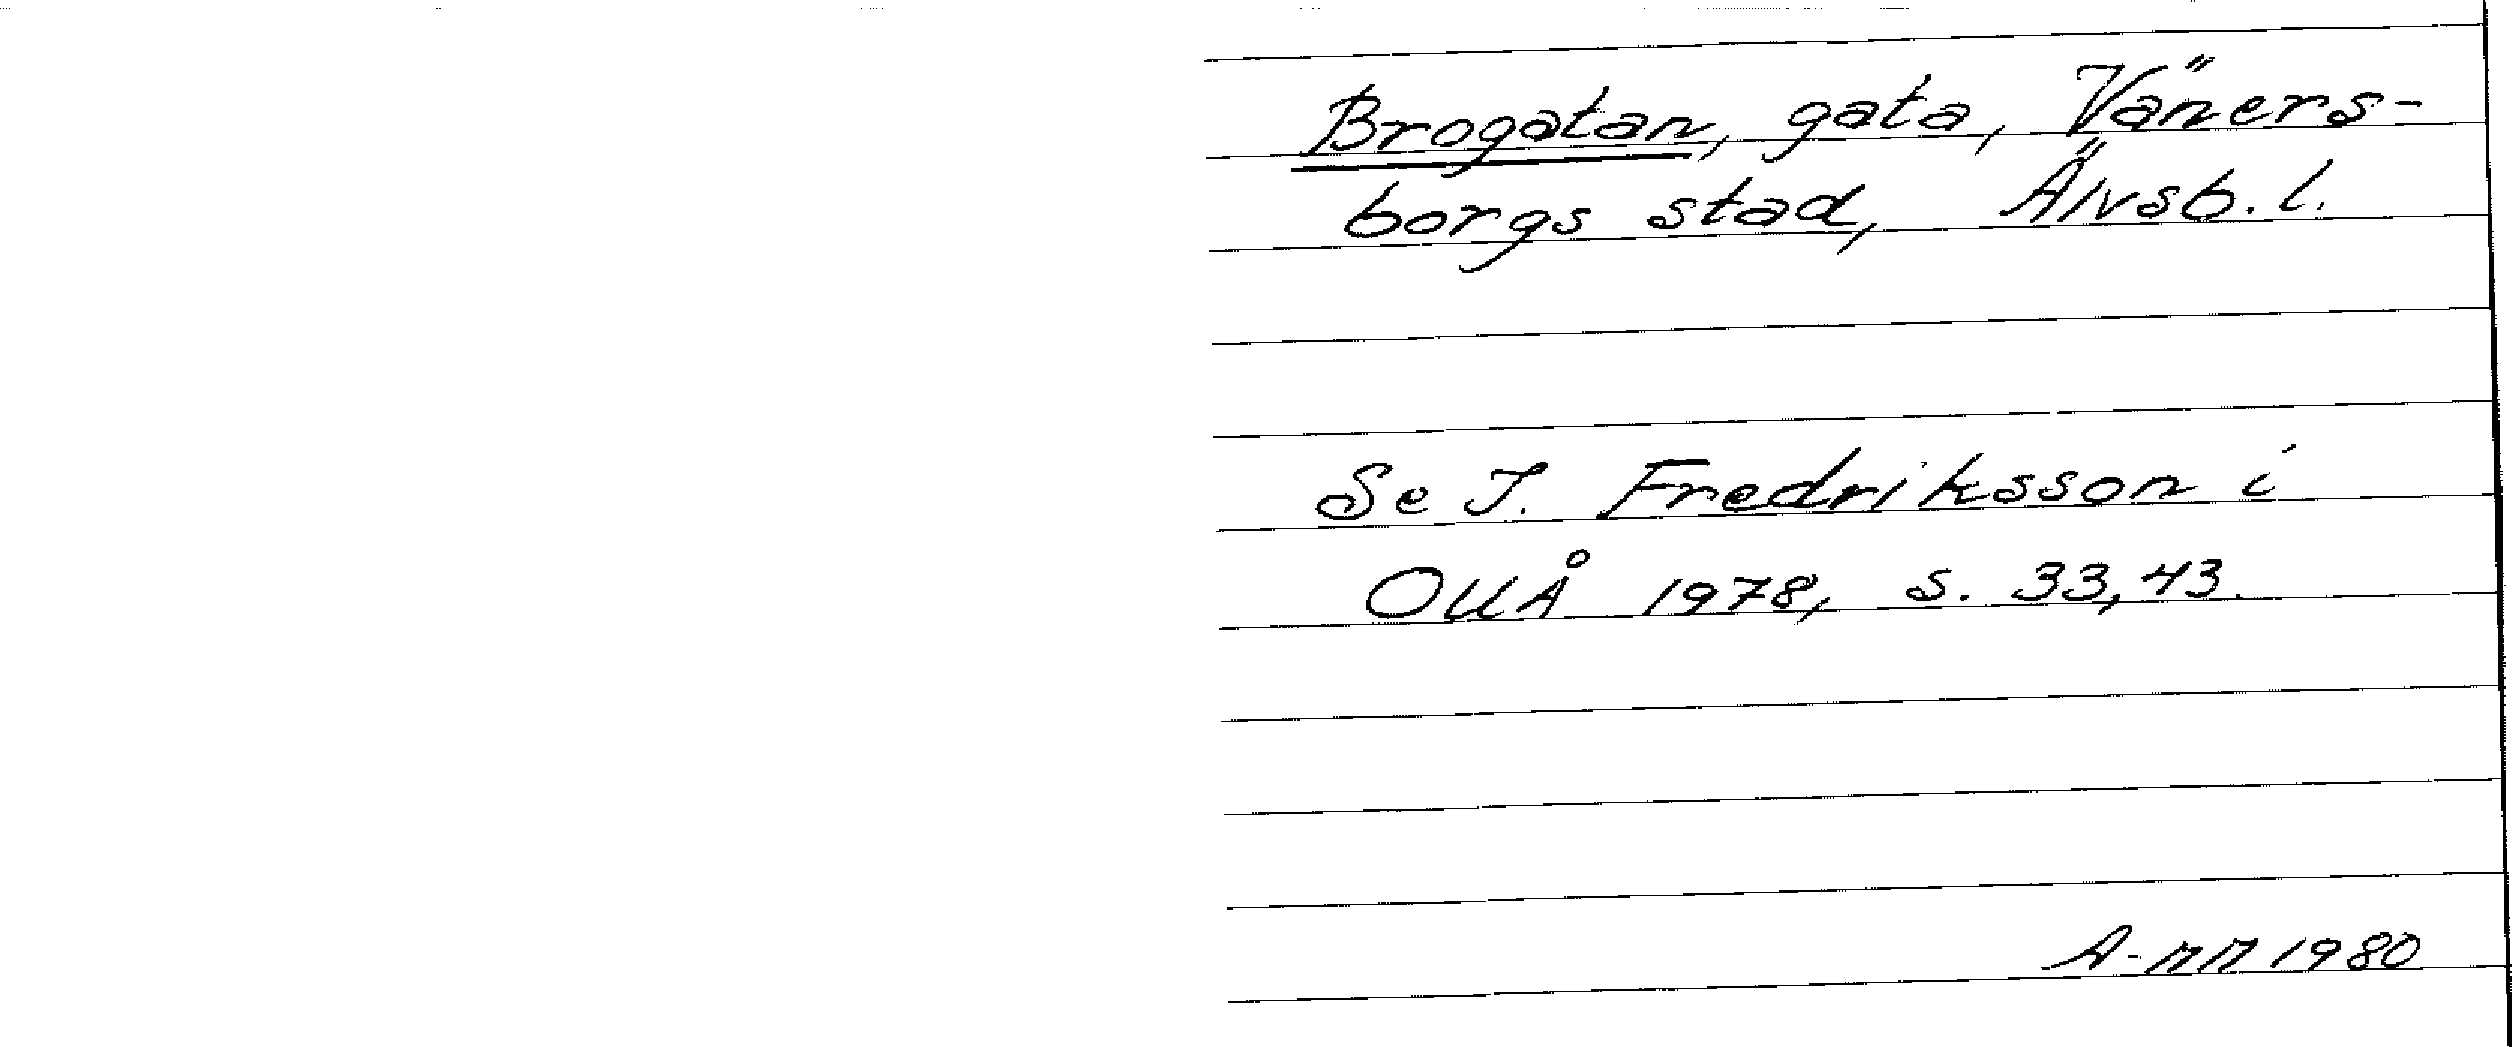 Brogatan, gata, Väners-
borgs stad, Älvsb. l.
Se I. Fredriksson i
OUÅ 1978, s. 33,43.
A-MM 1980